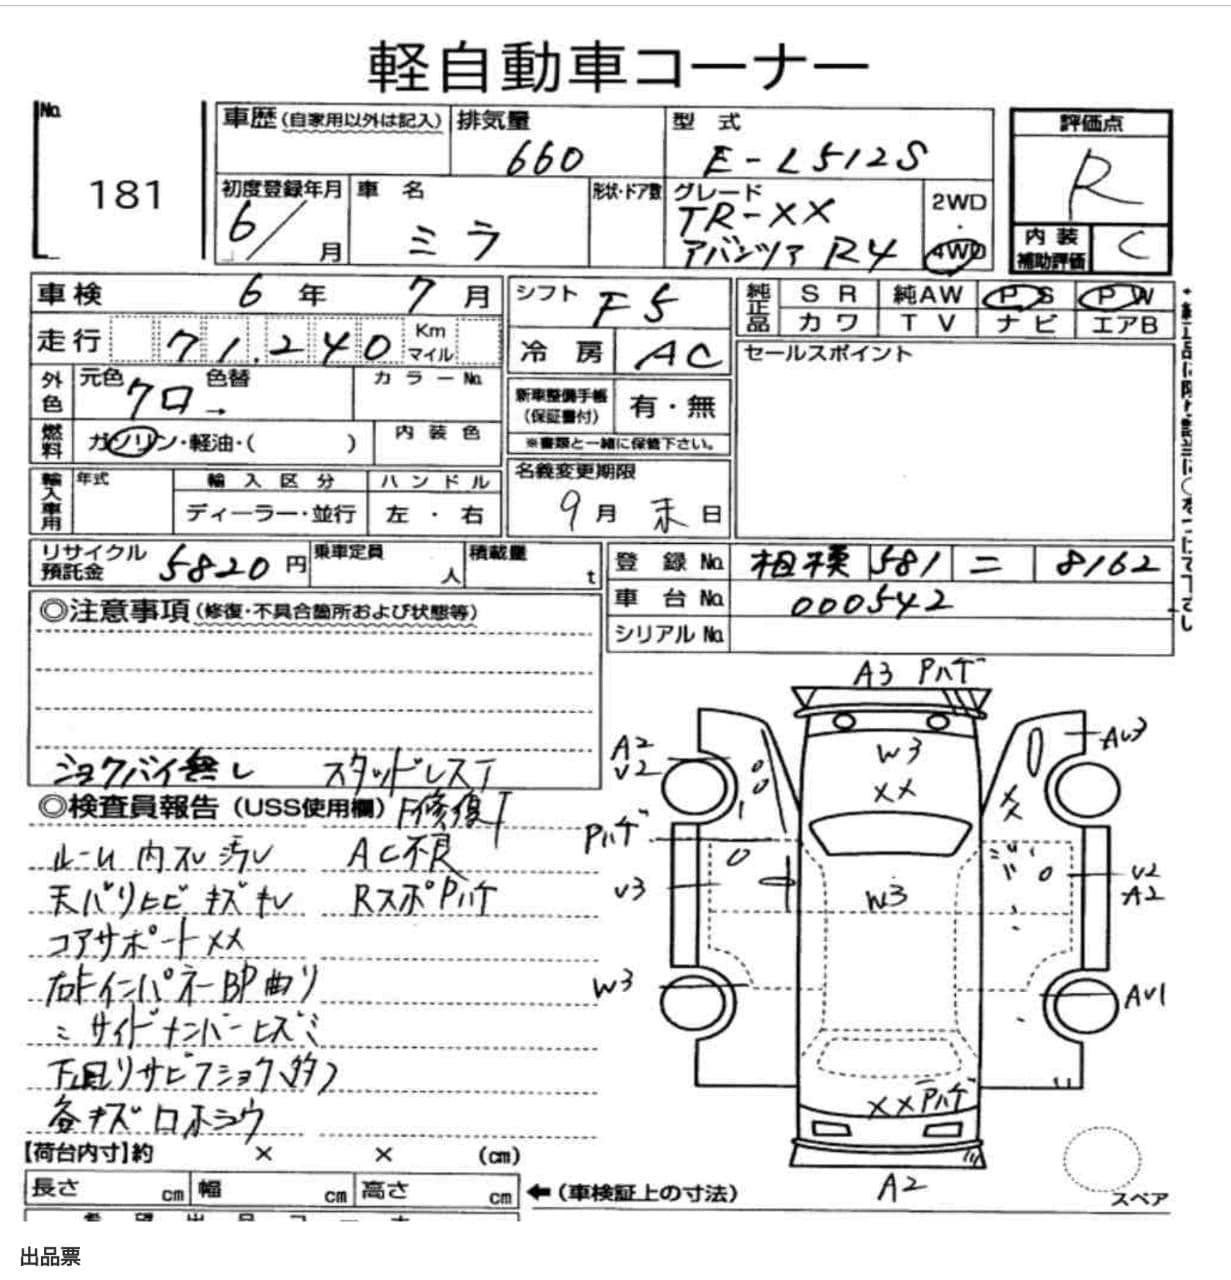 軽自動車コーナー
No.
181
車歴 (自家用以外は記入)
排気量
660
型式
E-L512S
初度登録年月
6/ 月
車名
ミラ
形状・ドア数
グレード
TR-XX
アバンツァ R4
2WD
・
4WD
評価点
R
内装
補助評価
C
車検 6年 7月
走行 71.240 Km
マイル
外色
元色 クロ →
色替
カラーNo.
燃料
ガソリン・軽油・( )
内装色
輸入車用
年式
輸入区分
ディーラー・並行
ハンドル
左・右
シフト F5
冷房 AC
新車整備手帳
(保証書付)
有・無
※書類と一緒に保管下さい。
名義変更期限
9月 末日
純正品
SR 純AW PS PW
カワ TV ナビ エアB
セールスポイント
リサイクル
預託金
5820円
乗車定員
人
積載量
t
登録No. 相模 581 ニ 8162
車台No. 000542
シリアルNo.
◎注意事項 (修復・不具合箇所および状態等)
ショクバイ無し スタッドレスT
◎検査員報告 (USS使用欄) F修復T
ルーム内スレ汚レ AC不良
天バリヒビ キズキレ RスポPハゲ
コアサポートXX
右Fインパネー BP曲リ
サイドナンバー
下回リサビフショク多
各キズ
【荷台内寸】約 × × (cm)
長さ cm 幅 cm 高さ cm
←(車検証上の寸法)
A3 Pハゲ
A2
V2
W3
XX
AU3
XX
Pハゲ
V3
W3
V2
A2
W3
AV1
XX Pハゲ
A2
スペア
出品票